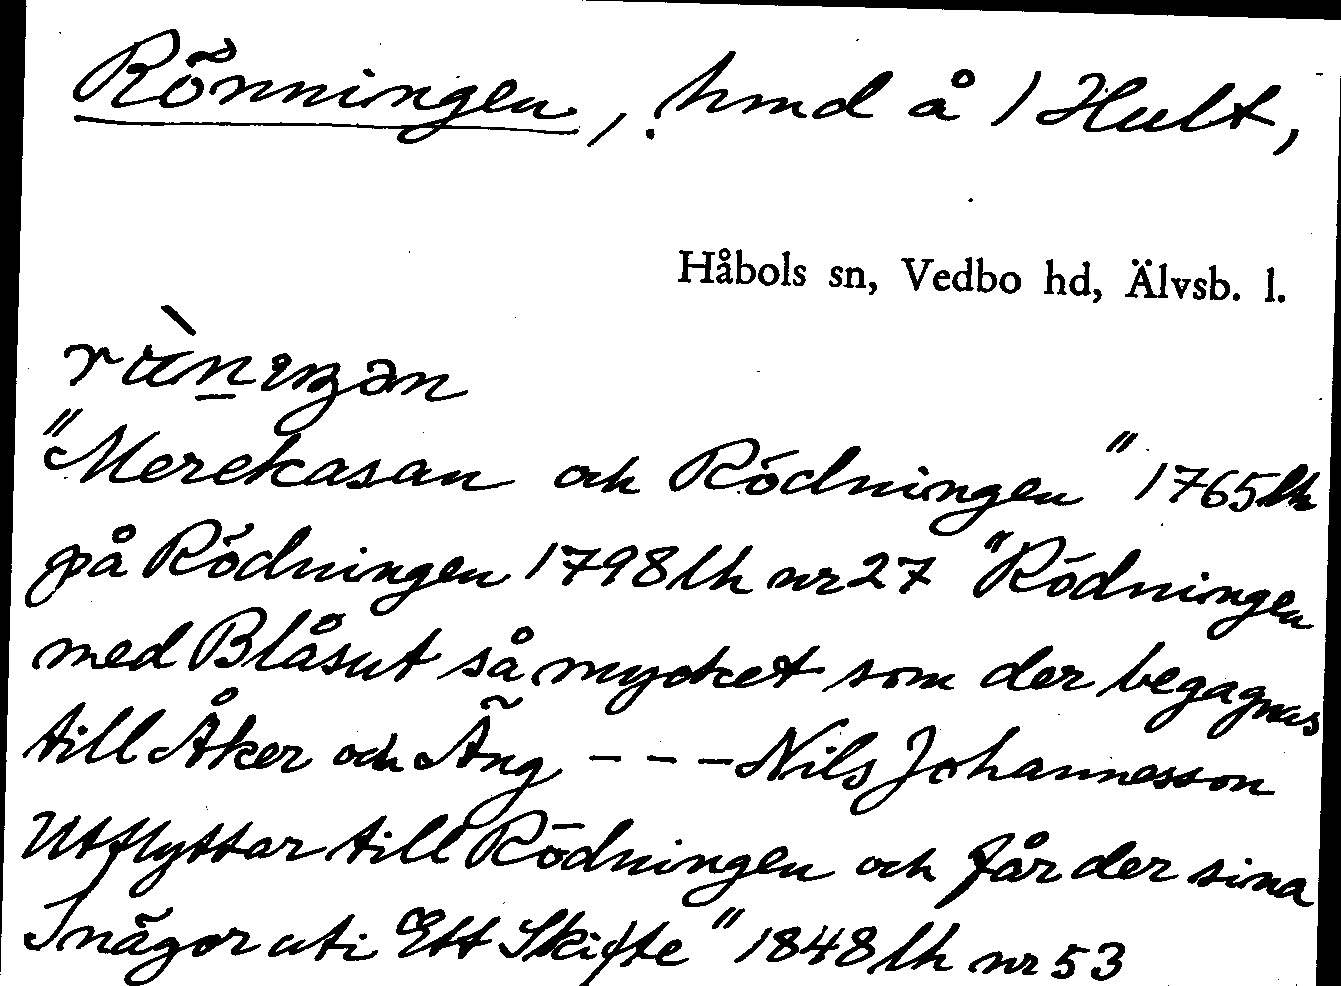 Rönningen, hmd å 1 Hult,
Håbols sn, Vedbo hd, Älvsb. l.
"Merekasan och Rödningen" 1765 lh
på Rödningen 1798 lh nr 27 "Rödningen
med Blåsut så mycket som der begagnas
till Åker och Äng --- Nils Johannesson
Utflyttar till Rödningen och får der sina
Inägor uti Ett Skifte" 1848 lh nr 53